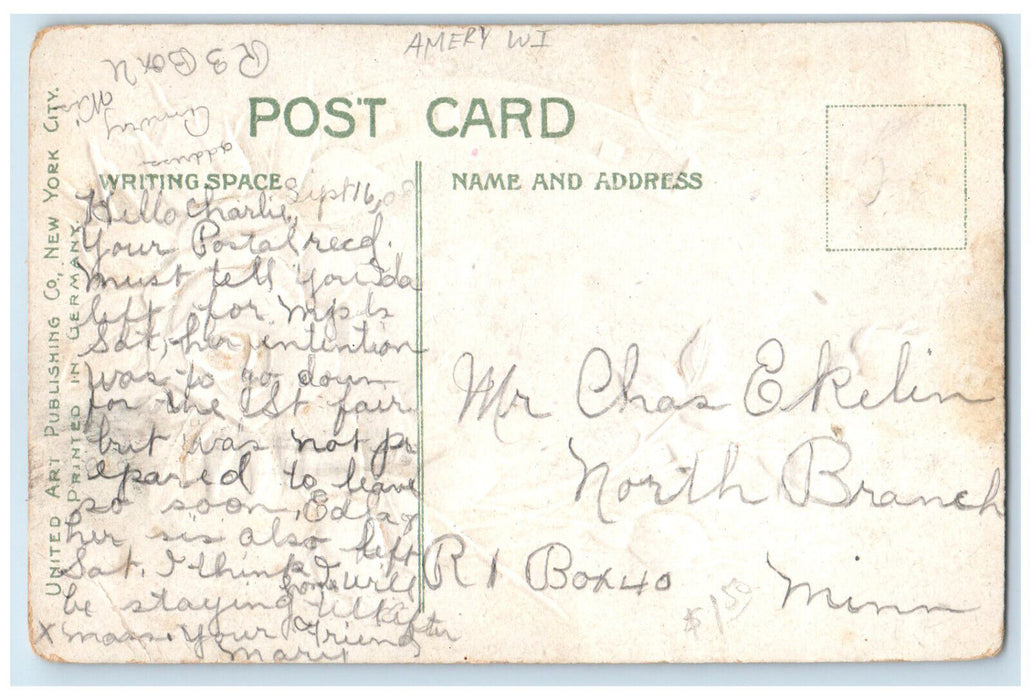 AMERY WI
R 3 Box U
Amery Wis
address
POST CARD
WRITING SPACE
NAME AND ADDRESS
UNITED ART PUBLISHING CO., NEW YORK CITY.
PRINTED IN GERMANY
Sept 16,
Hello Charlie,
Your Postal recd.
Must tell you Ida
left for Mpls
Sat, her intention
was to go down
for the St fair
but was not pr
epared to leave
so soon, Ed &
her sis also left
Sat, I think I will
be staying home till after
X mass. Your Friend
Mary
Mr Chas Ekelin
North Branch
R 1 Box 40
Minn
$1.50